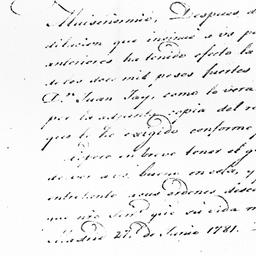 Muy señor mio, Despues d
dilacion que insinué a vs p
anteriores ha tenido efecto la
de los doce mil pesos fuertes
Dn. Juan Jay, como lo verá
por la adjunta copia del re
que le he exigido conforme
Espero en breve tener el g
de ver a vs. bueno en esta, y
entretanto a sus ordenes dese
que nro Señor gue su vida m
Madrid 27 de Junio 1781.